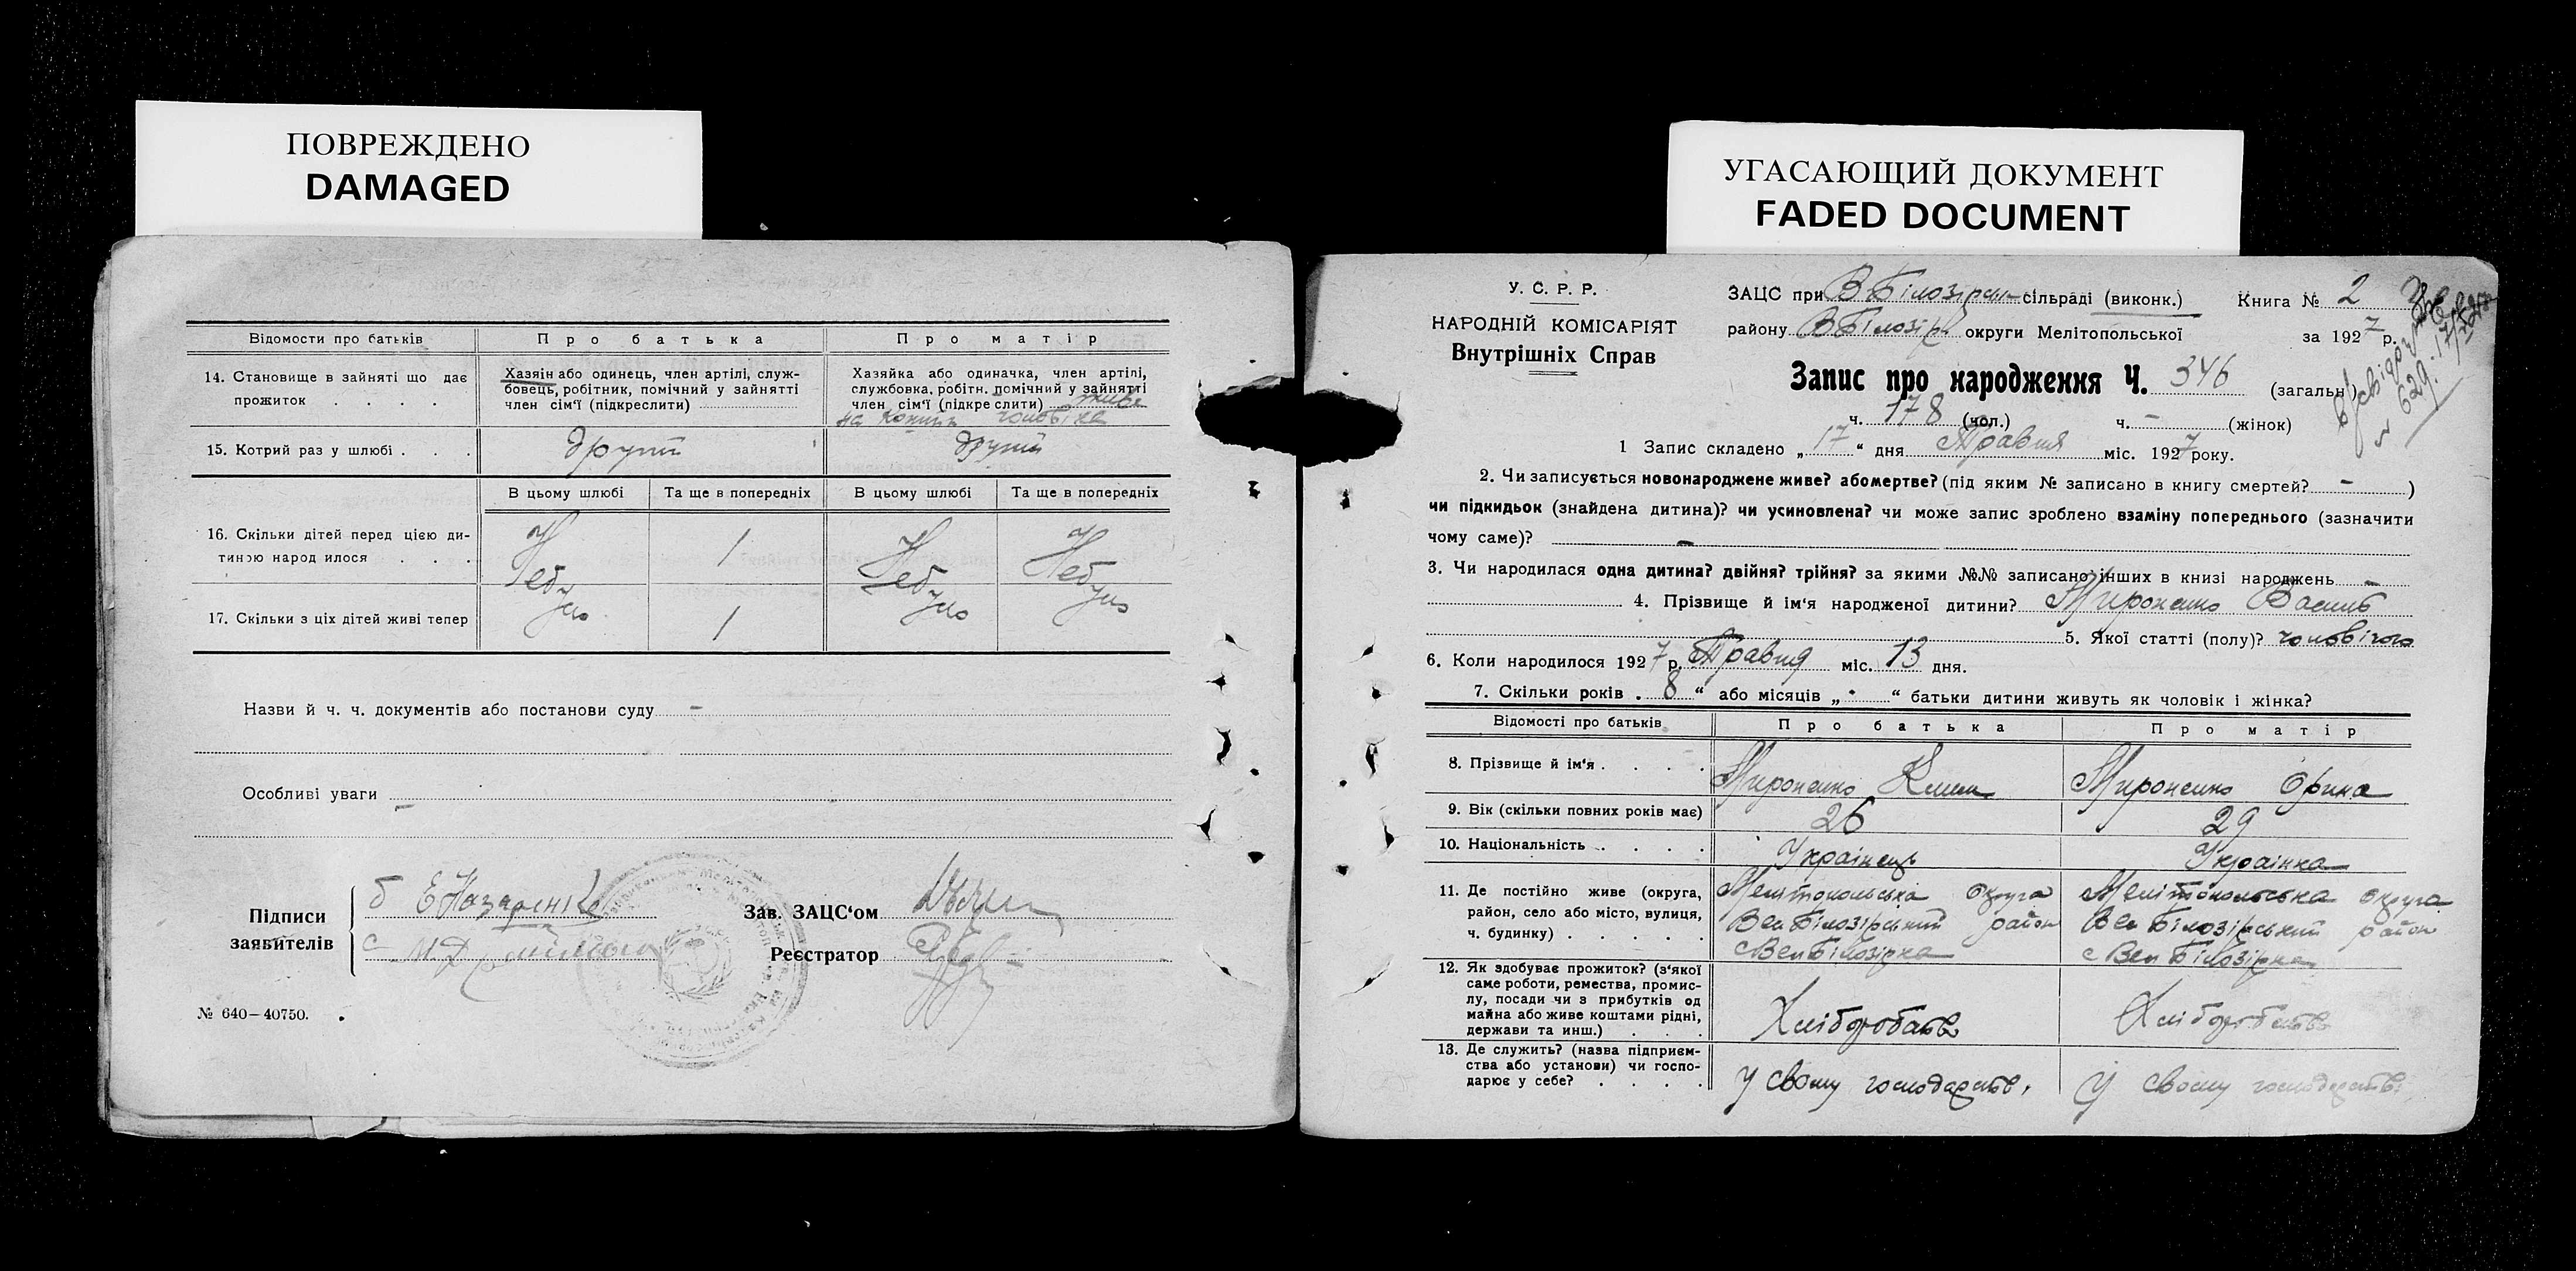 ПОВРЕЖДЕНО
DAMAGED
Відомости про батьків
Про батька
Про матір
14. Становище в зайняті що дає прожиток . . . .
Хазяін або одинець, член артілі, служ-
бовець, робітник, помічний у зайнятті
член сім'ї (підкреслити)
Хазяйка або одиначка, член артілі,
службовка, робітн. помічний у зайнятті
член сім'ї (підкреслити) живе
на кошти чоловіка
15. Котрий раз у шлюбі . . .
другий
другий
В цьому шлюбі
Та ще в попередніх
В цьому шлюбі
Та ще в попередніх
16. Скільки дітей перед цією ди-
тиною народилося . . .
Не було
1
Не було
Не було
17. Скільки з ціх дітей живі тепер
1
Назви й ч. ч. документів або постанови суду -
Особливі уваги -
Підписи
заявителів
б Е Назаренко
с М Д
Зав. ЗАЦС'ом
Реєстратор
№ 640—40750.
УГАСАЮЩИЙ ДОКУМЕНТ
FADED DOCUMENT
У. С. Р. Р.
НАРОДНІЙ КОМІСАРІЯТ
Внутрішніх Справ
ЗАЦС при В Білозірск сільраді (виконк.) Книга № 2
району В Білозір округи Мелітопольської за 1927 р.
Запис про народження Ч. 346 (загальн.)
ч. 178 (чол.) ч. - (жінок)
№ 629. 17/
1 Запис складено „17“ дня Травня міс. 1927 року.
2. Чи записується новонароджене живе? або мертве? (під яким № записано в книгу смертей? - )
чи підкидьок (знайдена дитина)? чи усиновлена? чи може запис зроблено взаміну попереднього (зазначити
чому саме)? -
3. Чи народилася одна дитина? двійня? трійня? за якими №№ записано інших в книзі народжень -
4. Прізвище й ім'я народженої дитини? Мироненко Василь
5. Якої статті (полу)? чоловічого
6. Коли народилося 1927 р. Травня міс. 13 дня.
7. Скільки років „8“ або місяців „-“ батьки дитини живуть як чоловік і жінка?
Відомості про батьків
Про батька
Про матір
8. Прізвище й ім'я . . . .
Мироненко Клим
Мироненко Орина
9. Вік (скільки повних років має)
26
29
10. Національність . . . .
Українець
Українка
11. Де постійно живе (округа,
район, село або місто, вулиця,
ч. будинку) . . . . .
Мелітопольська округа
Вел Білозірський район
с Вел Білозірка
Мелітопольська округа
Вел Білозірський район
с Вел Білозірка
12. Як здобуває прожиток? (з'якої
саме роботи, ремества, промис-
лу, посади чи з прибутків од
майна або живе коштами рідні,
держави та инш.) . . .
Хліборобств
Хліборобств
13. Де служить? (назва підприєм-
ства або установи) чи госпо-
дарює у себе? . . . .
У свому господарстві
У свому господарстві